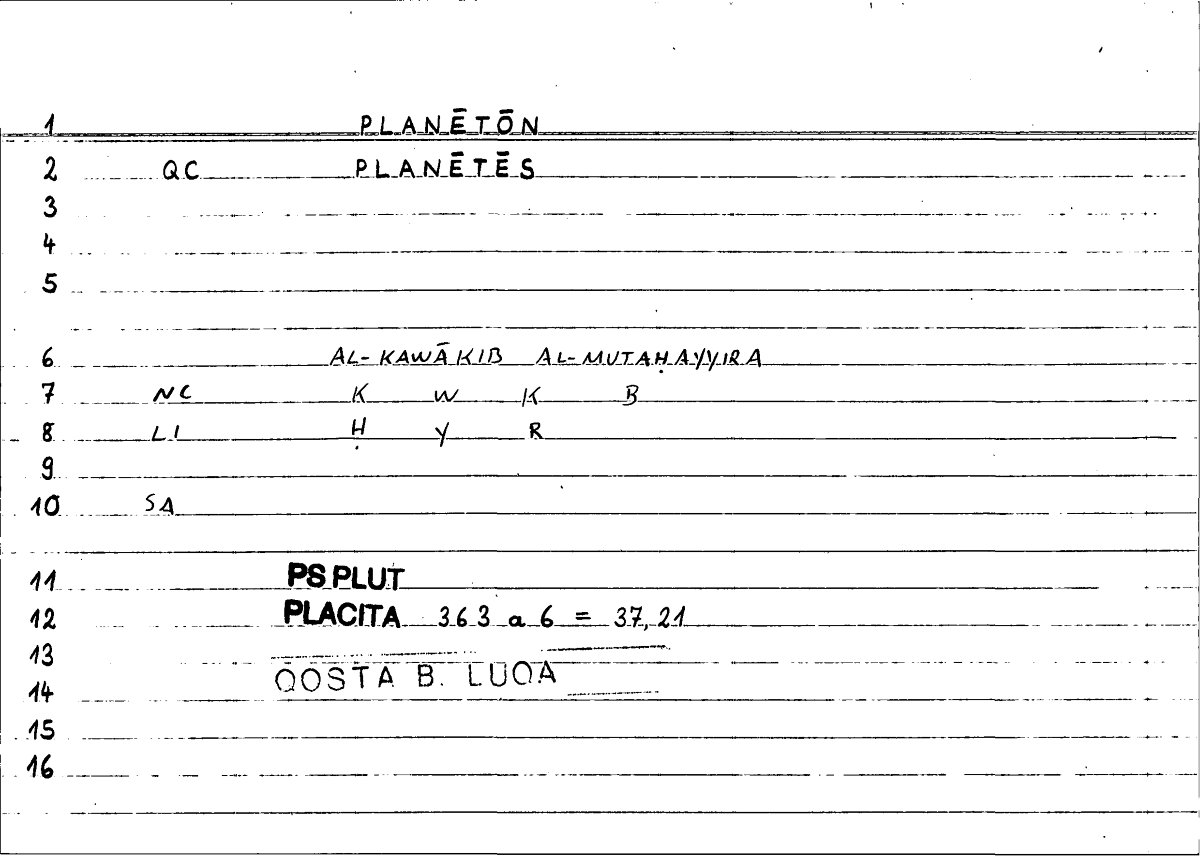 1 PLANĒTŌN
2 QC PLANĒTĒS
3
4
5
6 AL-KAWĀKIB AL-MUTAḤAYYIRA
7 NC K W K B
8 LI Ḥ Y R
9
10 SA
11 PS PLUT
12 PLACITA 363 a 6 = 37,21
13
14 QOSTA B. LUQA
15
16